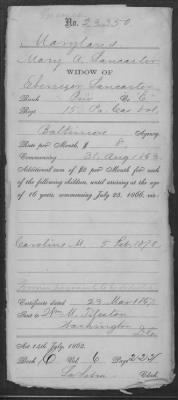 No. 23,350
Maryland
Mary A. Lancaster
WIDOW OF
Ebenezer Lancaster
Rank Pri Co. C
Regt 15. Pa. Cav. Vol.
Baltimore Agency
Rate per Month, $ 8
Commencing 31. Aug 1863
Additional sum of $2 per Month for each
of the following children, until arriving at the
age of 16 years commencing July 25, 1866, viz:
Caroline M. 5 Feb. 1870
Certificate dated 23 Mar 1867
Sent to Wm M.
Washington
Act 14th July, 1862.
Book C Vol. 6 Page 222
Clerk.